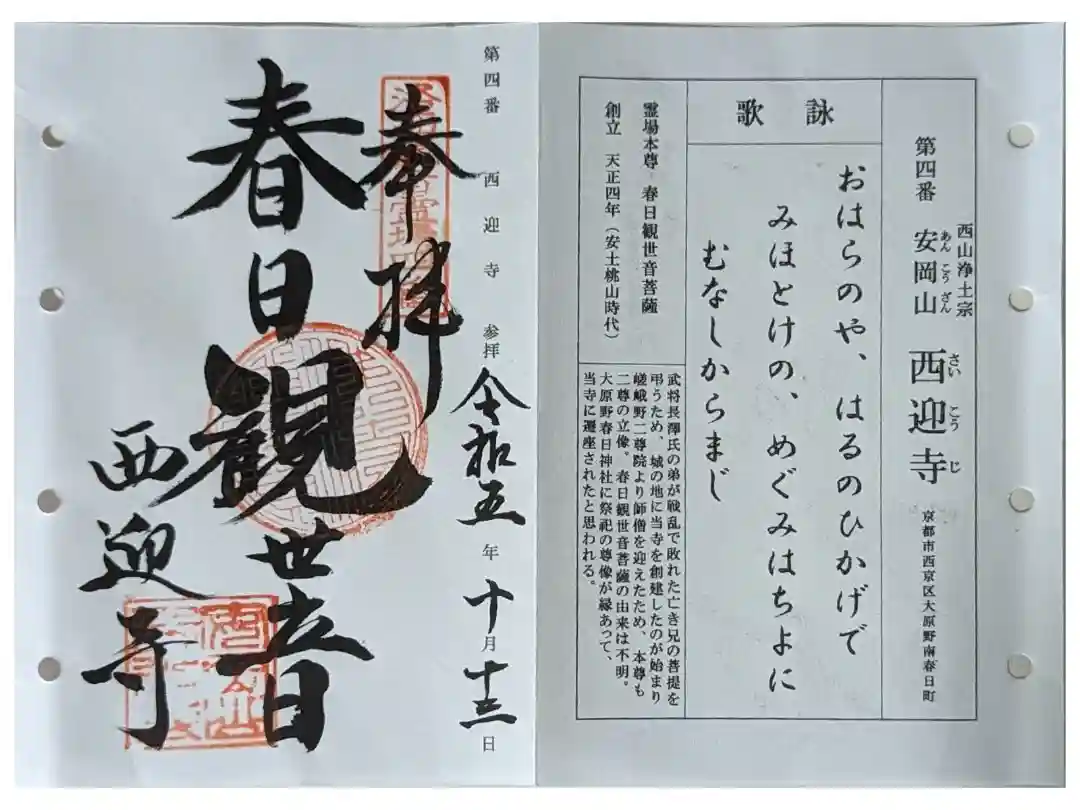 西山浄土宗
第四番 安岡山 西迎寺 京都市西京区大原野南春日町
あんこうざん さいこうじ
詠歌
おはらのや、はるのひかげで
みほとけの、めぐみはちよに
むなしからまじ
霊場本尊 春日観世音菩薩
創立 天正四年(安土桃山時代)
武将長澤氏の弟が戦乱で敗れた亡き兄の菩提を
弔うため、城の地に当寺を創建したのが始まり
嵯峨野二尊院より師僧を迎えたため、本尊も
二尊の立像。春日観世音菩薩の由来は不明。
大原野春日神社に祭祀の尊像が縁あって、
当寺に遷座されたと思われる。
第四番 西迎寺 参拝 令和五年十月十三日
奉拝
春日観世音
西迎寺